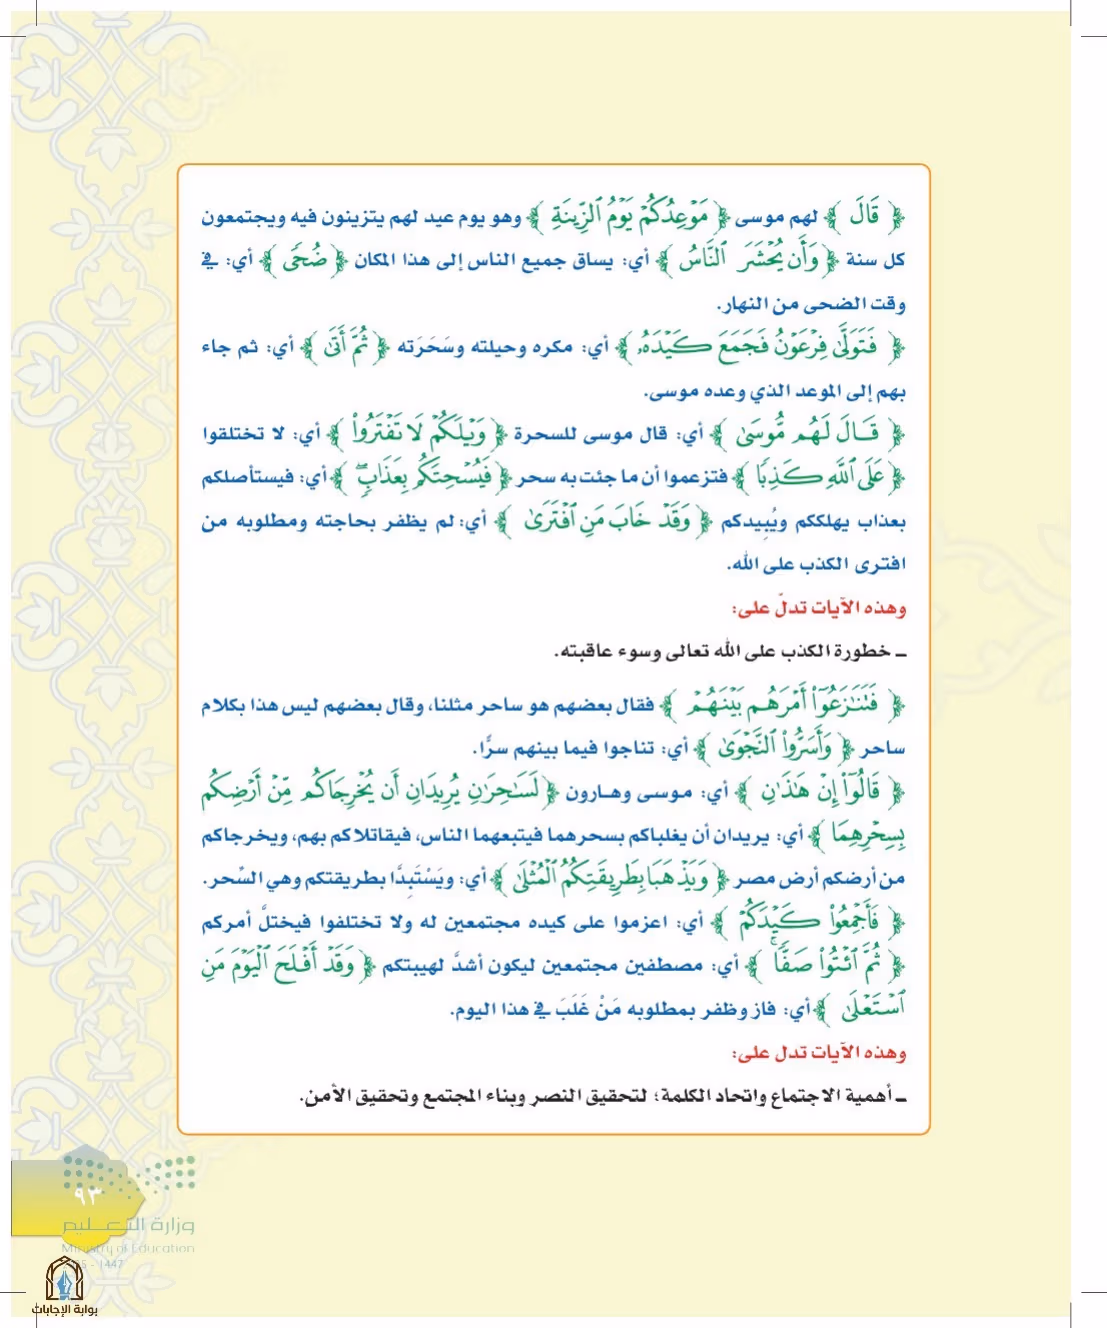 ﴿ قَالَ ﴾ لهم موسى ﴿ مَوْعِدُكُمْ يَوْمُ ٱلزِّينَةِ ﴾ وهو يوم عيد لهم يتزينون فيه ويجتمعون
كل سنة ﴿ وَأَن يُحْشَرَ ٱلنَّاسُ ﴾ أي: يساق جميع الناس إلى هذا المكان ﴿ ضُحًى ﴾ أي: في
وقت الضحى من النهار.
﴿ فَتَوَلَّىٰ فِرْعَوْنُ فَجَمَعَ كَيْدَهُۥ ﴾ أي: مكره وحيلته وسَحَرَته ﴿ ثُمَّ أَتَىٰ ﴾ أي: ثم جاء
بهم إلى الموعد الذي وعده موسى.
﴿ قَالَ لَهُم مُّوسَىٰ ﴾ أي: قال موسى للسحرة ﴿ وَيْلَكُمْ لَا تَفْتَرُوا۟ ﴾ أي: لا تختلقوا
﴿ عَلَى ٱللَّهِ كَذِبًا ﴾ فتزعموا أن ما جئت به سحر ﴿ فَيُسْحِتَكُم بِعَذَابٍۖ ﴾ أي: فيستأصلكم
بعذاب يهلككم ويُبِيدكم ﴿ وَقَدْ خَابَ مَنِ ٱفْتَرَىٰ ﴾ أي: لم يظفر بحاجته ومطلوبه من
افترى الكذب على الله.
وهذه الآيات تدلّ على:
ـ خطورة الكذب على الله تعالى وسوء عاقبته.
﴿ فَتَنَـٰزَعُوٓا۟ أَمْرَهُم بَيْنَهُمْ ﴾ فقال بعضهم هو ساحر مثلنا، وقال بعضهم ليس هذا بكلام
ساحر ﴿ وَأَسَرُّوا۟ ٱلنَّجْوَىٰ ﴾ أي: تناجوا فيما بينهم سرًّا.
﴿ قَالُوٓا۟ إِنْ هَـٰذَٰنِ ﴾ أي: موسى وهارون ﴿ لَسَـٰحِرَٰنِ يُرِيدَانِ أَن يُخْرِجَاكُم مِّنْ أَرْضِكُم
بِسِحْرِهِمَا ﴾ أي: يريدان أن يغلباكم بسحرهما فيتبعهما الناس، فيقاتلاكم بهم، ويخرجاكم
من أرضكم أرض مصر ﴿ وَيَذْهَبَا بِطَرِيقَتِكُمُ ٱلْمُثْلَىٰ ﴾ أي: ويَسْتَبِدَّا بطريقتكم وهي السِّحر.
﴿ فَأَجْمِعُوا۟ كَيْدَكُمْ ﴾ أي: اعزموا على كيده مجتمعين له ولا تختلفوا فيختلَّ أمركم
﴿ ثُمَّ ٱئْتُوا۟ صَفًّاۚ ﴾ أي: مصطفين مجتمعين ليكون أشدَّ لهيبتكم ﴿ وَقَدْ أَفْلَحَ ٱلْيَوْمَ مَنِ
ٱسْتَعْلَىٰ ﴾ أي: فاز وظفر بمطلوبه مَنْ غَلَبَ في هذا اليوم.
وهذه الآيات تدل على:
ـ أهمية الاجتماع واتحاد الكلمة؛ لتحقيق النصر وبناء المجتمع وتحقيق الأمن.
٩٣
وزارة التعليم
Ministry of Education
- 1447
بوابة الإجابات